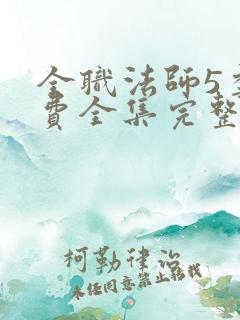 全職法師5
費全集完整
柯勒律治
未经同意禁止转载